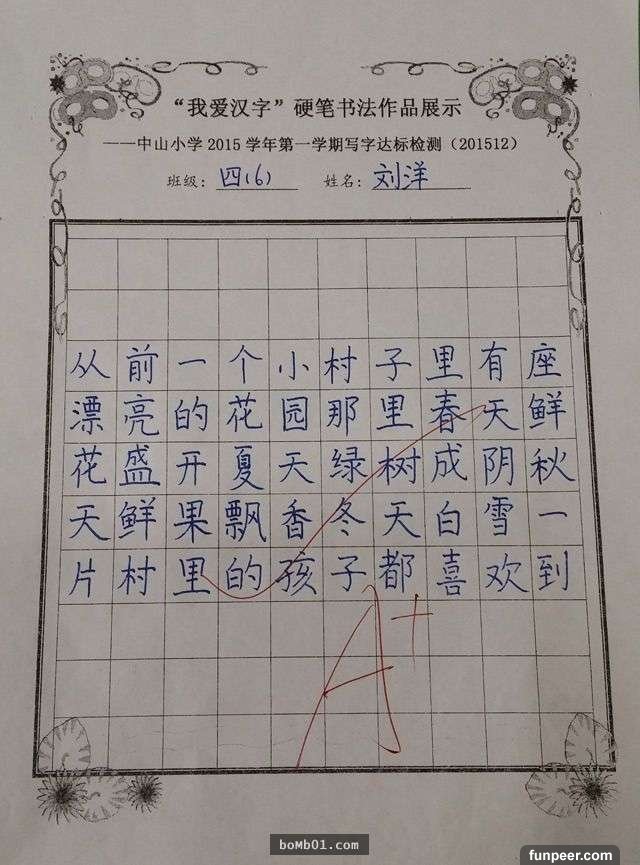 “我爱汉字”硬笔书法作品展示
——中山小学2015学年第一学期写字达标检测（201512）
班级：四(6) 姓名：刘洋
从前一个小村子里有座
漂亮的花园那里春天鲜
花盛开夏天绿树成阴秋
天鲜果飘香冬天白雪一
片村里的孩子都喜欢到
A+
boMb01.com
funpeer.com